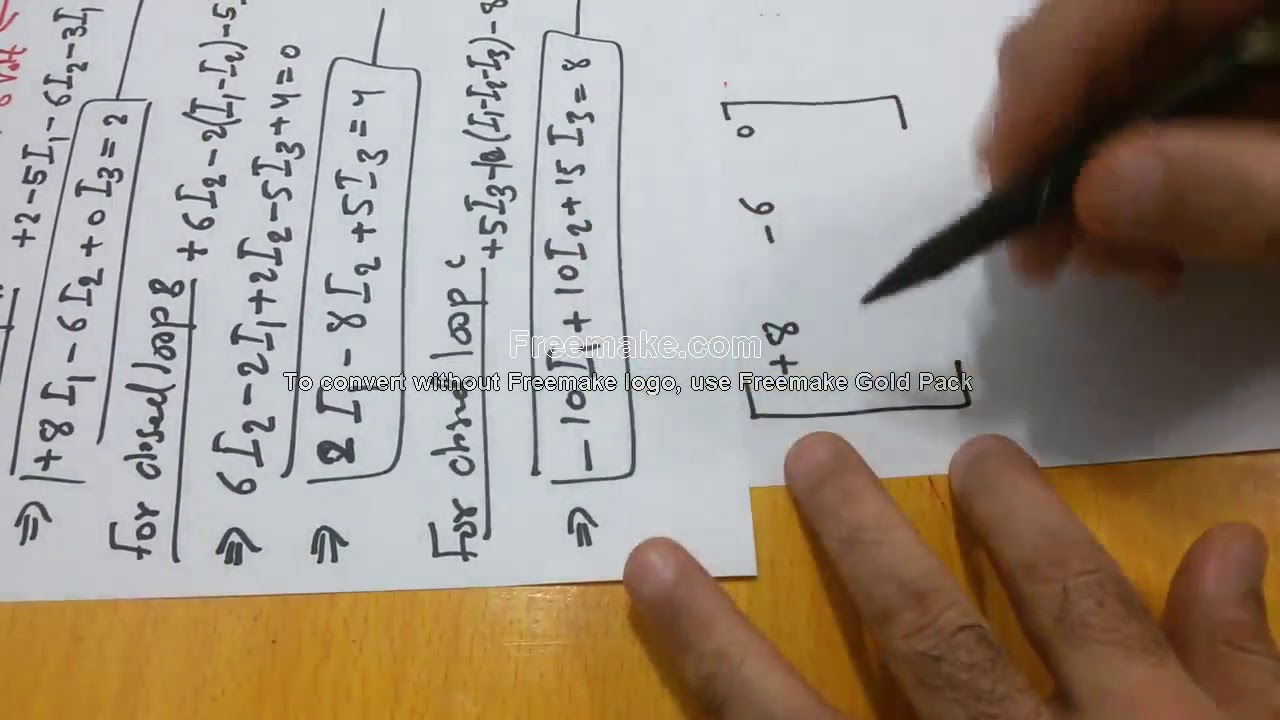 6 Volt
+2-5I₁-6I₂-3I₁
⇒ +8I₁-6I₂+0I₃=2
For closed loop B +6I₂-2(I₁-I₂)-5
⇒ 6I₂-2I₁+2I₂-5I₃+4=0
⇒ 2I₁-8I₂+5I₃=4
For closed loop C +5I₃-10(I₁-I₂-I₃)-8
⇒ -10I₁+10I₂+15I₃=8
+8 -6 0
Freemake.com
To convert without Freemake logo, use Freemake Gold Pack